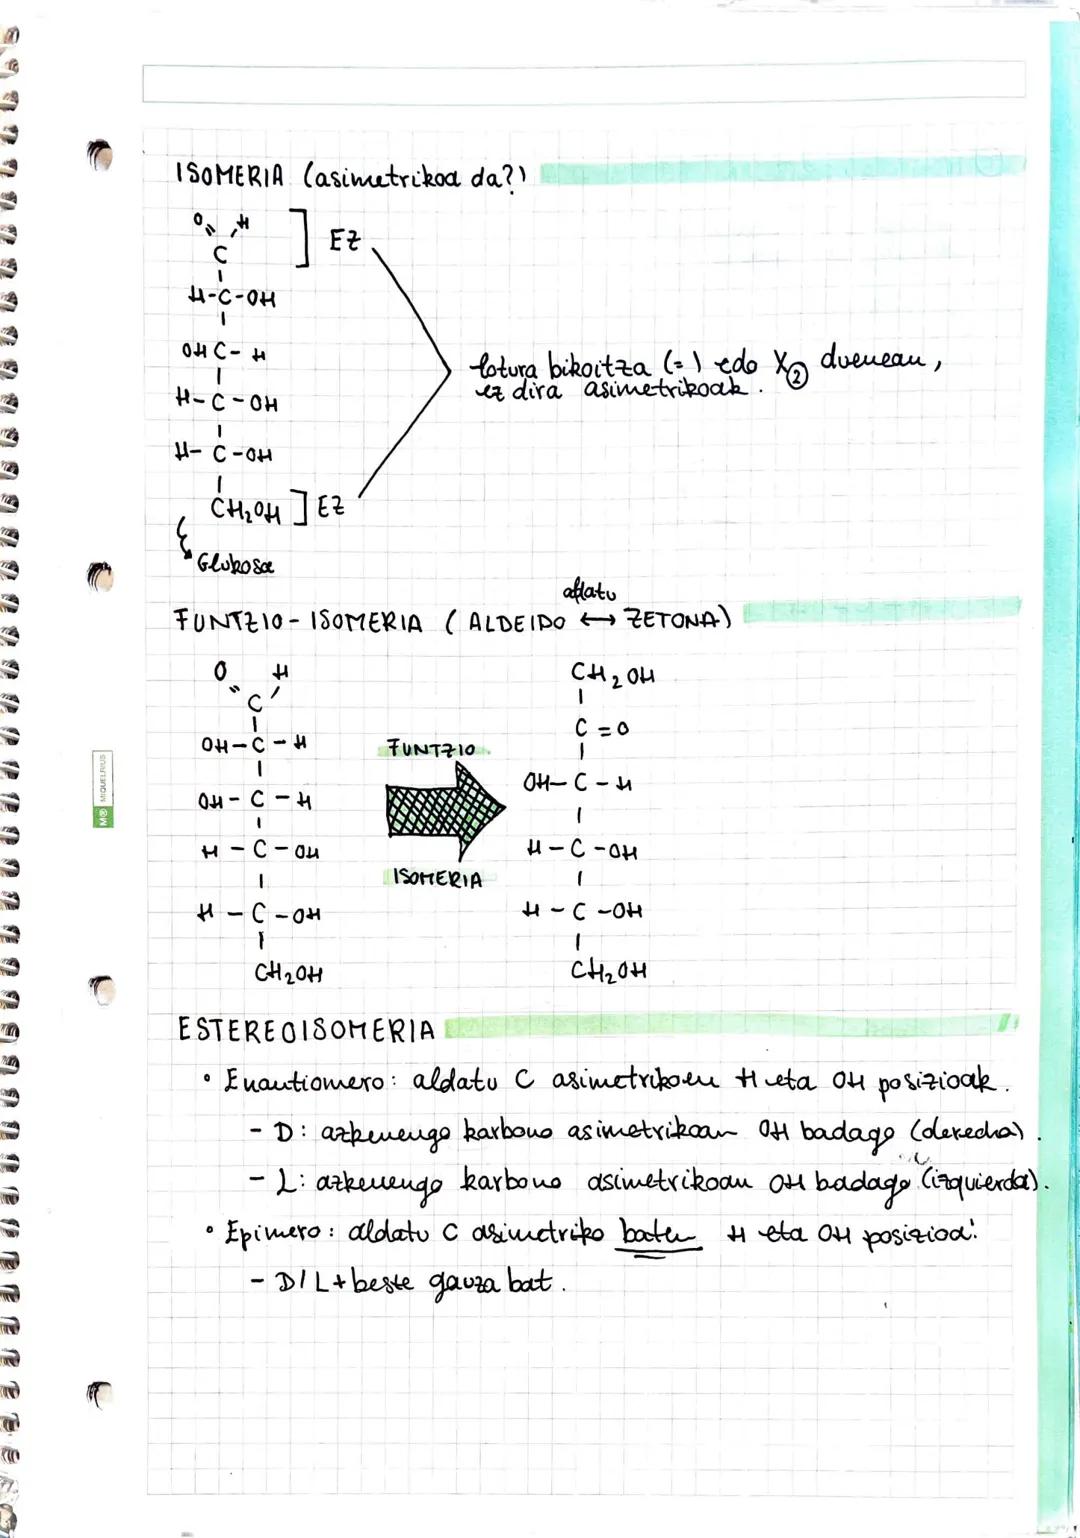 ISOMERIA (asimetrikoa da?)
O H
C ] EZ
H-C-OH
OH C-H
lotura bikoitza (=) edo X② dueneau,
ez dira asimetrikoak.
H-C-OH
H-C-OH
CH₂OH ] EZ
Glukosa
aldatu
FUNTZIO-ISOMERIA (ALDEIDO ↔ ZETONA)
O H
C
OH-C-H
OH-C-H
H-C-OH
H-C-OH
CH₂OH
FUNTZIO
ISOMERIA
CH₂OH
C=O
OH-C-H
H-C-OH
H-C-OH
CH₂OH
M® MIQUELRIUS
ESTEREOISOMERIA
• Enantiomero: aldatu C asimetrikoen H eta OH posizioak.
- D: azkenengo karbono asimetrikoan OH badago (derecha).
- L: azkenengo karbono asimetrikoan OH badago (izquierda).
• Epimero: aldatu C asimetriko baten H eta OH posizioa:
- D/L + beste gauza bat.